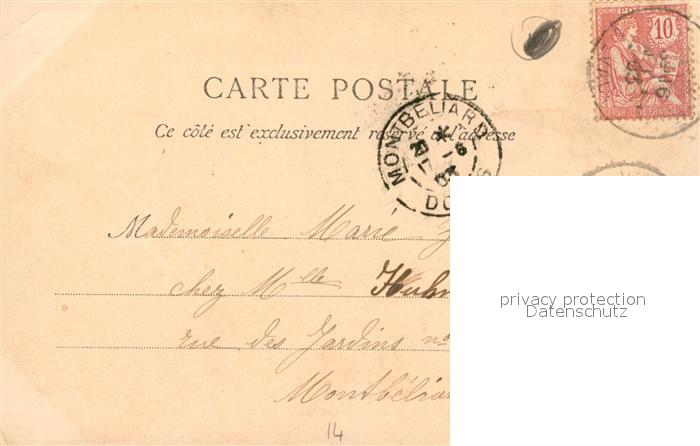 10
RÉPUBLIQUE FRANÇAISE
CARTE POSTALE
Ce côté est exclusivement réservé à l'adresse
MONTBÉLIARD
DOUBS
Mademoiselle Marie
chez Mlle Huhn
rue des Jardins no
Montbéliar
privacy protection
Datenschutz
14